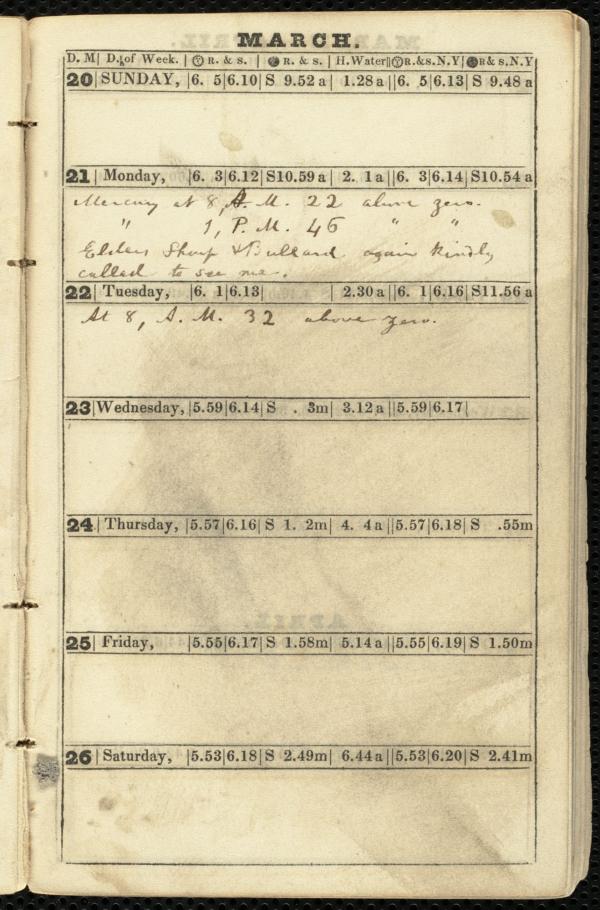 MARCH.
D. M| D. of Week. | R. & s. | R. & s. | H.Water|| R.&s.N.Y| R& s.N.Y
20| SUNDAY, |6. 5|6.10| S 9.52 a| 1.28 a||6. 5|6.13| S 9.48 a
21| Monday, |6. 3|6.12| S10.59 a| 2. 1 a||6. 3|6.14| S10.54 a
Mercury at 8, A. M. 22 above zero.
" 1, P. M. 46 " "
Elders Sharp & Bullard again kindly
called to see me.
22| Tuesday, |6. 1|6.13| | 2.30 a||6. 1|6.16| S11.56 a
At 8, A. M. 32 above zero.
23| Wednesday, |5.59|6.14| S . 3m| 3.12 a||5.59|6.17|
24| Thursday, |5.57|6.16| S 1. 2m| 4. 4 a||5.57|6.18| S .55m
25| Friday, |5.55|6.17| S 1.58m| 5.14 a||5.55|6.19| S 1.50m
26| Saturday, |5.53|6.18| S 2.49m| 6.44 a||5.53|6.20| S 2.41m